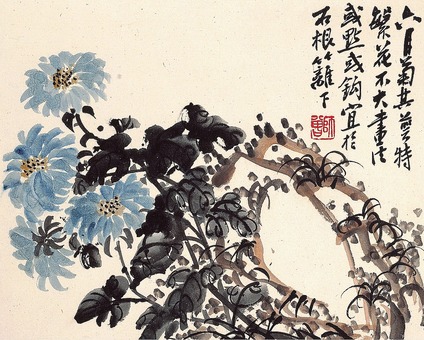 六月菊其萼特
繁花不大畫法
或點或鈎宜於
石根籬下
師曾